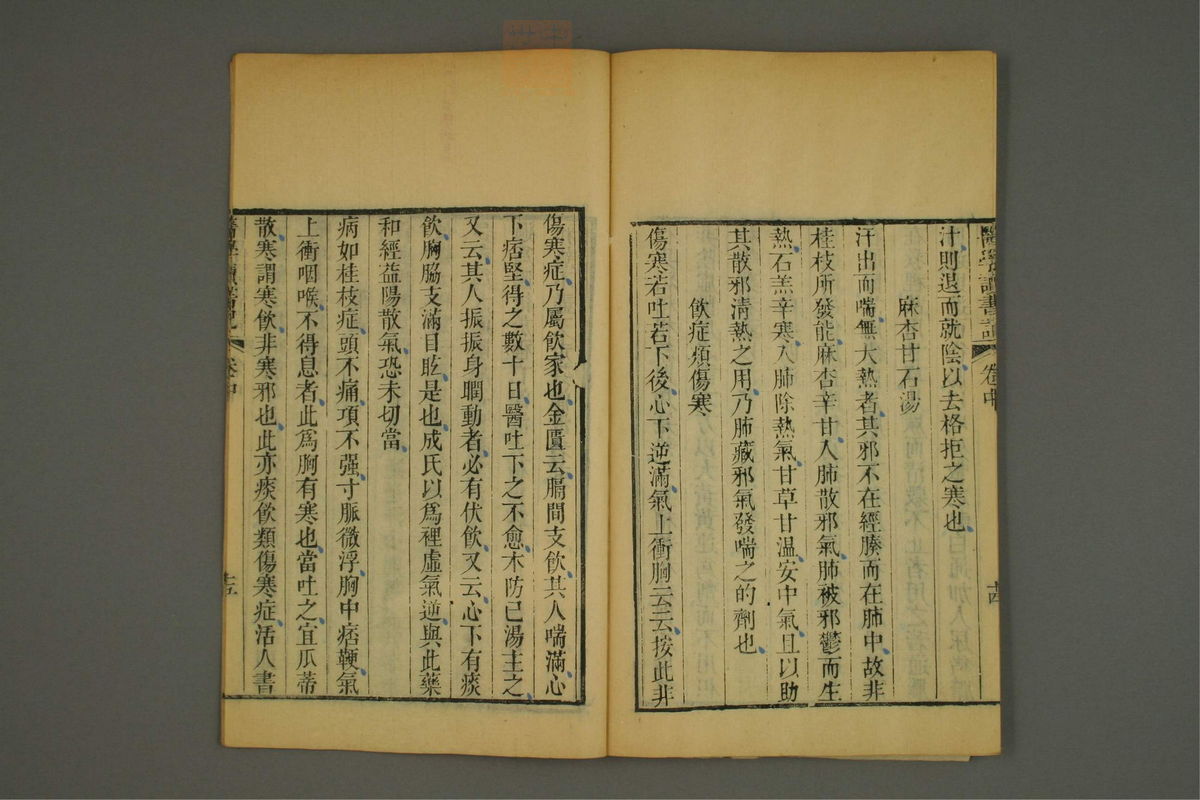 醫學讀書記 卷中 十四
汁則退而就陰以去格拒之寒也
麻杏甘石湯
汗出而喘無大熱者其邪不在經腠而在肺中故非
桂枝所發能麻杏辛甘入肺散邪氣肺被邪鬱而生
熱石羔辛寒入肺除熱氣甘草甘温安中氣且以助
其散邪清熱之用乃肺藏邪氣發喘之的劑也
飲症類傷寒
傷寒若吐若下後心下逆滿氣上衝胸云云按此非
傷寒症乃屬飲家也金匱云膈間支飲其人喘滿心
下痞堅得之數十日醫吐下之不愈木防已湯主之
又云其人振振身瞤動者必有伏飲又云心下有痰
飲胸脇支滿目眩是也成氏以爲裡虛氣逆與此藥
和經益陽散氣恐未切當
病如桂枝症頭不痛項不强寸脈微浮胸中痞鞕氣
上衝咽喉不得息者此爲胸有寒也當吐之宜瓜蒂
散寒謂寒飲非寒邪也此亦痰飲類傷寒症活人書
醫學讀書記 卷中 十五